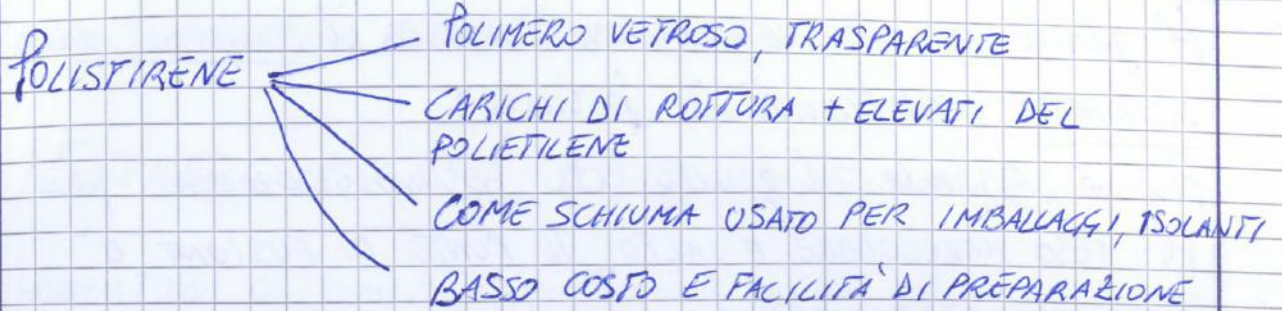 POLISTIRENE
POLIMERO VETROSO, TRASPARENTE
CARICHI DI ROTTURA + ELEVATI DEL
POLIETILENE
COME SCHIUMA USATO PER IMBALLAGGI, ISOLANTI
BASSO COSTO E FACILITÀ DI PREPARAZIONE